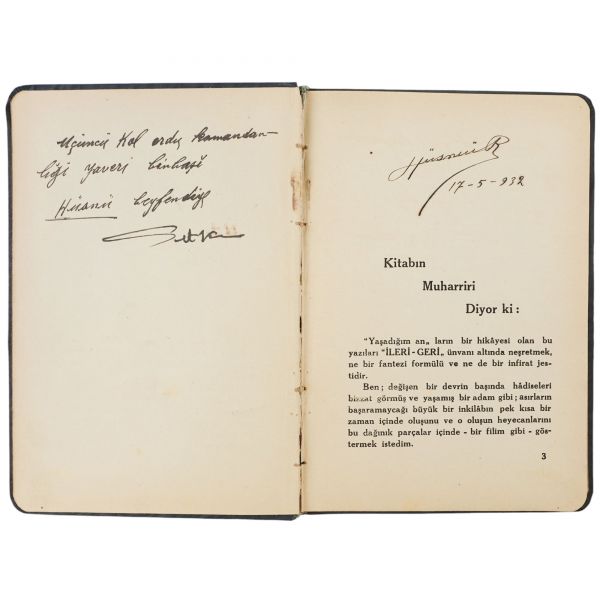 Üçüncü Kol ordu kamandan-
lığı yaveri binbaşı
Hüsnü beyfendiye
Hüsnü R
17-5-932
Kitabın
Muharriri
Diyor ki:
"Yaşadığım an„ ların bir hikâyesi olan bu
yazıları "İLERİ-GERİ„ ünvanı altında neşretmek,
ne bir fantezi formülü ve ne de bir infirat jes-
tidir.
Ben; değişen bir devrin başında hâdiseleri
bizzat görmüş ve yaşamış bir adam gibi; asırların
başaramaycağı büyük bir inkilâbın pek kısa bir
zaman içinde oluşunu ve o oluşun heyecanlarını
bu dağınık parçalar içinde - bir filim gibi - gös-
termek istedim.
3